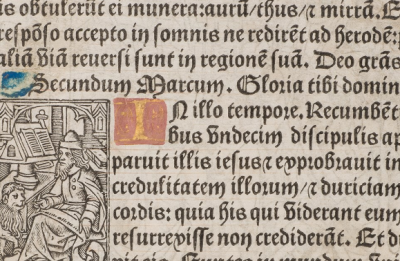 is obtulerūt ei munera: aurū/thus/⁊ mirrā. E
respōso accepto in somnis ne redirēt ad herodē: p
aliā viā reuersi sunt in regionē suā. Deo grās
Secundum Marcum. Gloria tibi domin
IN illo tempore. Recumbēt
bus vndecim discipulis ap
paruit illis iesus⁊ exprobrauit in
credulitatem illorum/⁊ duriciam
cordis: quia his qui viderant eum
resurrexisse non crediderāt. Et di